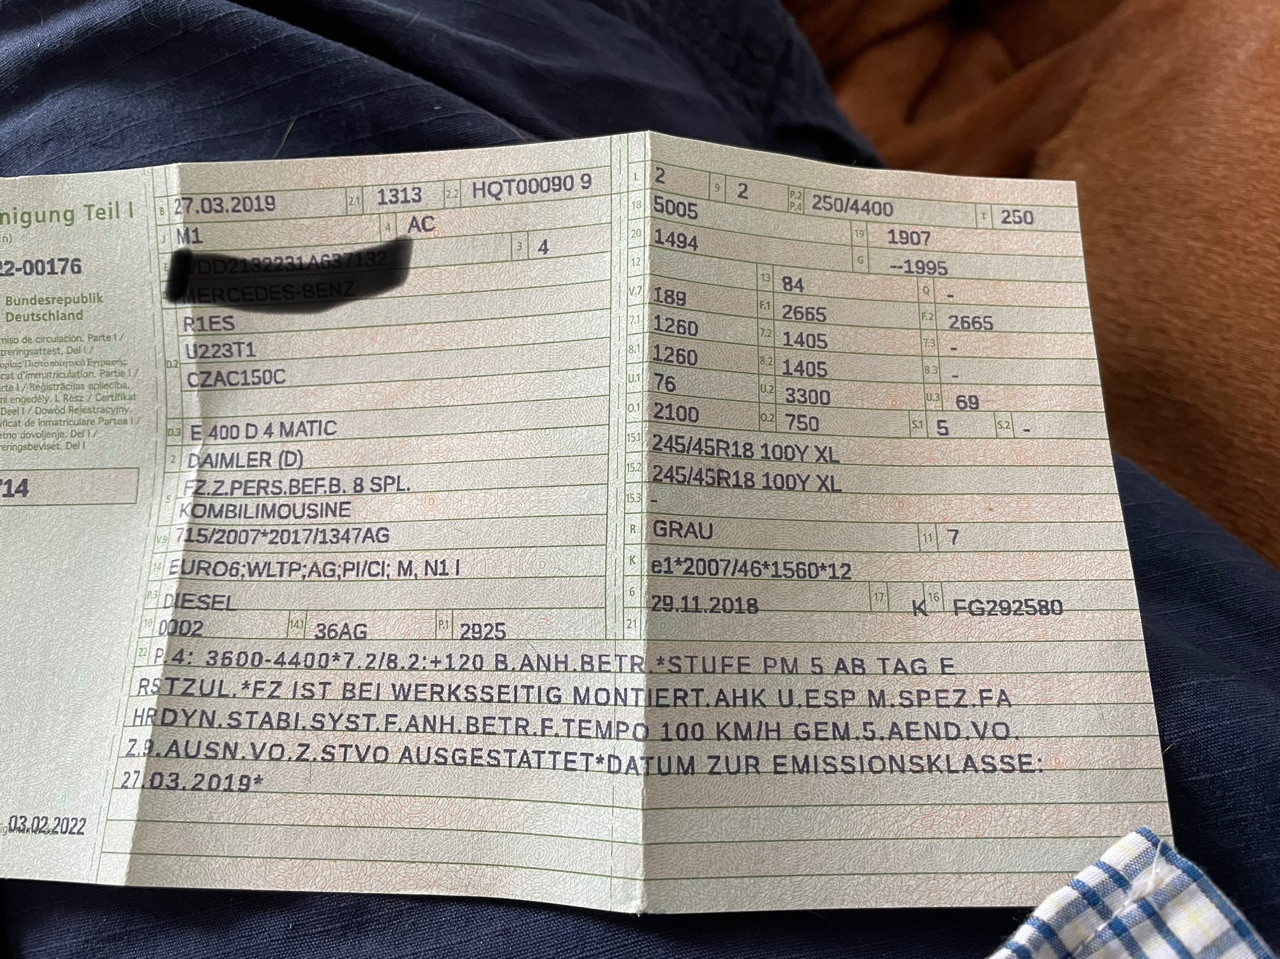 nigung Teil I
22-00176
Bundesrepublik
Deutschland
miso de circulación. Parte I /
treringsattest. Del I /
cat d'immatriculation. Partie I /
rte I / Reģistrācijas apliecība.
ni engedély. I. Rész / Certifikat
Deel I / Dowód Rejestracyjny.
ficat de înmatriculare Partea I /
etno dovoljenje. Del I /
reringsbeviset. Del I
714
03.02.2022
B 27.03.2019 2.1 1313 2.2 HQT00090 9
J M1 4 AC
3 4
MERCEDES-BENZ
R1ES
U223T1
D.2 CZAC150C
D.3 E 400 D 4 MATIC
2 DAIMLER (D)
5 FZ.Z.PERS.BEF.B. 8 SPL.
KOMBILIMOUSINE
V.9 715/2007*2017/1347AG
14 EURO6;WLTP;AG;PI/CI; M, N1 I
P.3 DIESEL
10 0002 14.1 36AG P.1 2925
L 2 9 2 P.2 P.4 250/4400 T 250
18 5005 19 1907
20 1494 G --1995
12 13 84 Q -
V.7 189 F.1 2665 F.2 2665
7.1 1260 7.2 1405 7.3 -
8.1 1260 8.2 1405 8.3 -
U.1 76 U.2 3300 U.3 69
O.1 2100 O.2 750 S.1 5 S.2 -
15.1 245/45R18 100Y XL
15.2 245/45R18 100Y XL
15.3 -
R GRAU 11 7
K e1*2007/46*1560*12
6 29.11.2018 17 K 16 FG292580
21
22 P.4: 3600-4400*7.2/8.2:+120 B.ANH.BETR.*STUFE PM 5 AB TAG E
RSTZUL.*FZ IST BEI WERKSSEITIG MONTIERT.AHK U.ESP M.SPEZ.FA
HRDYN.STABI.SYST.F.ANH.BETR.F.TEMPO 100 KM/H GEM.5.AEND.VO.
Z.9.AUSN.VO.Z.STVO AUSGESTATTET*DATUM ZUR EMISSIONSKLASSE:
27.03.2019*